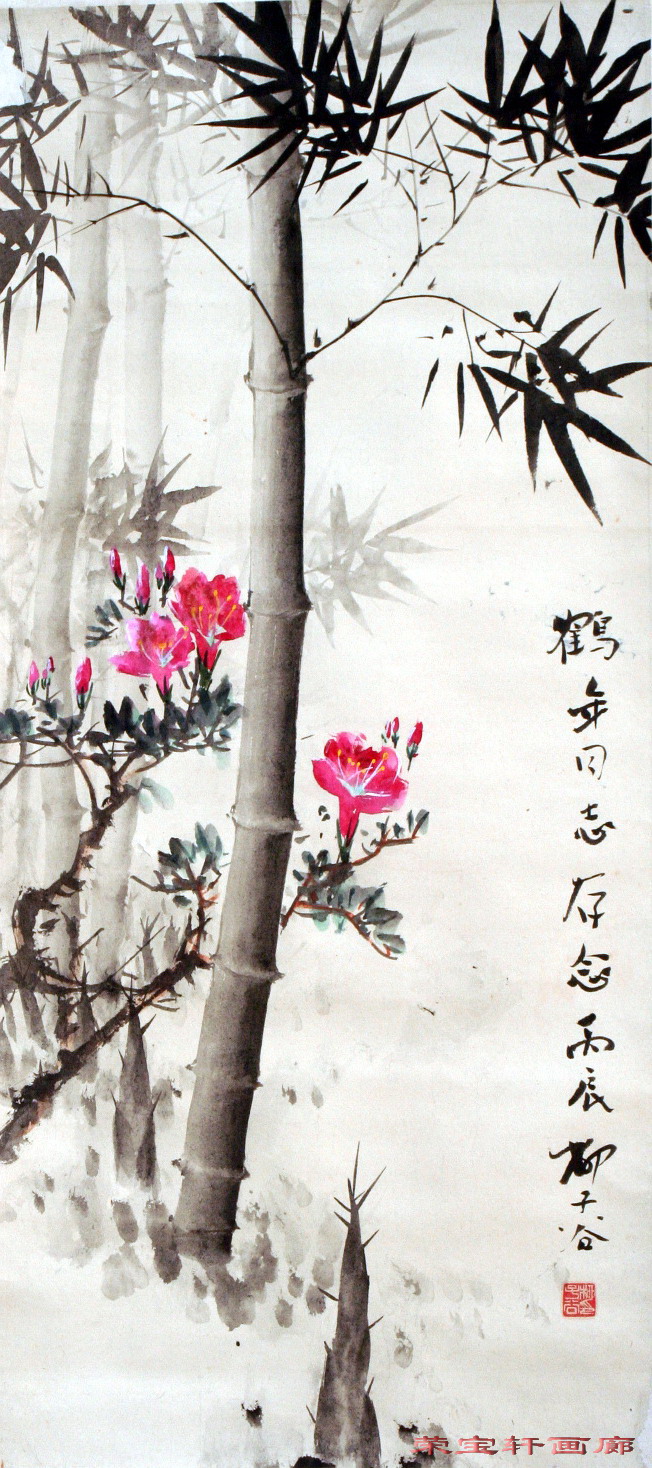 鶴年同志存念丙辰柳子谷
荣宝轩画廊